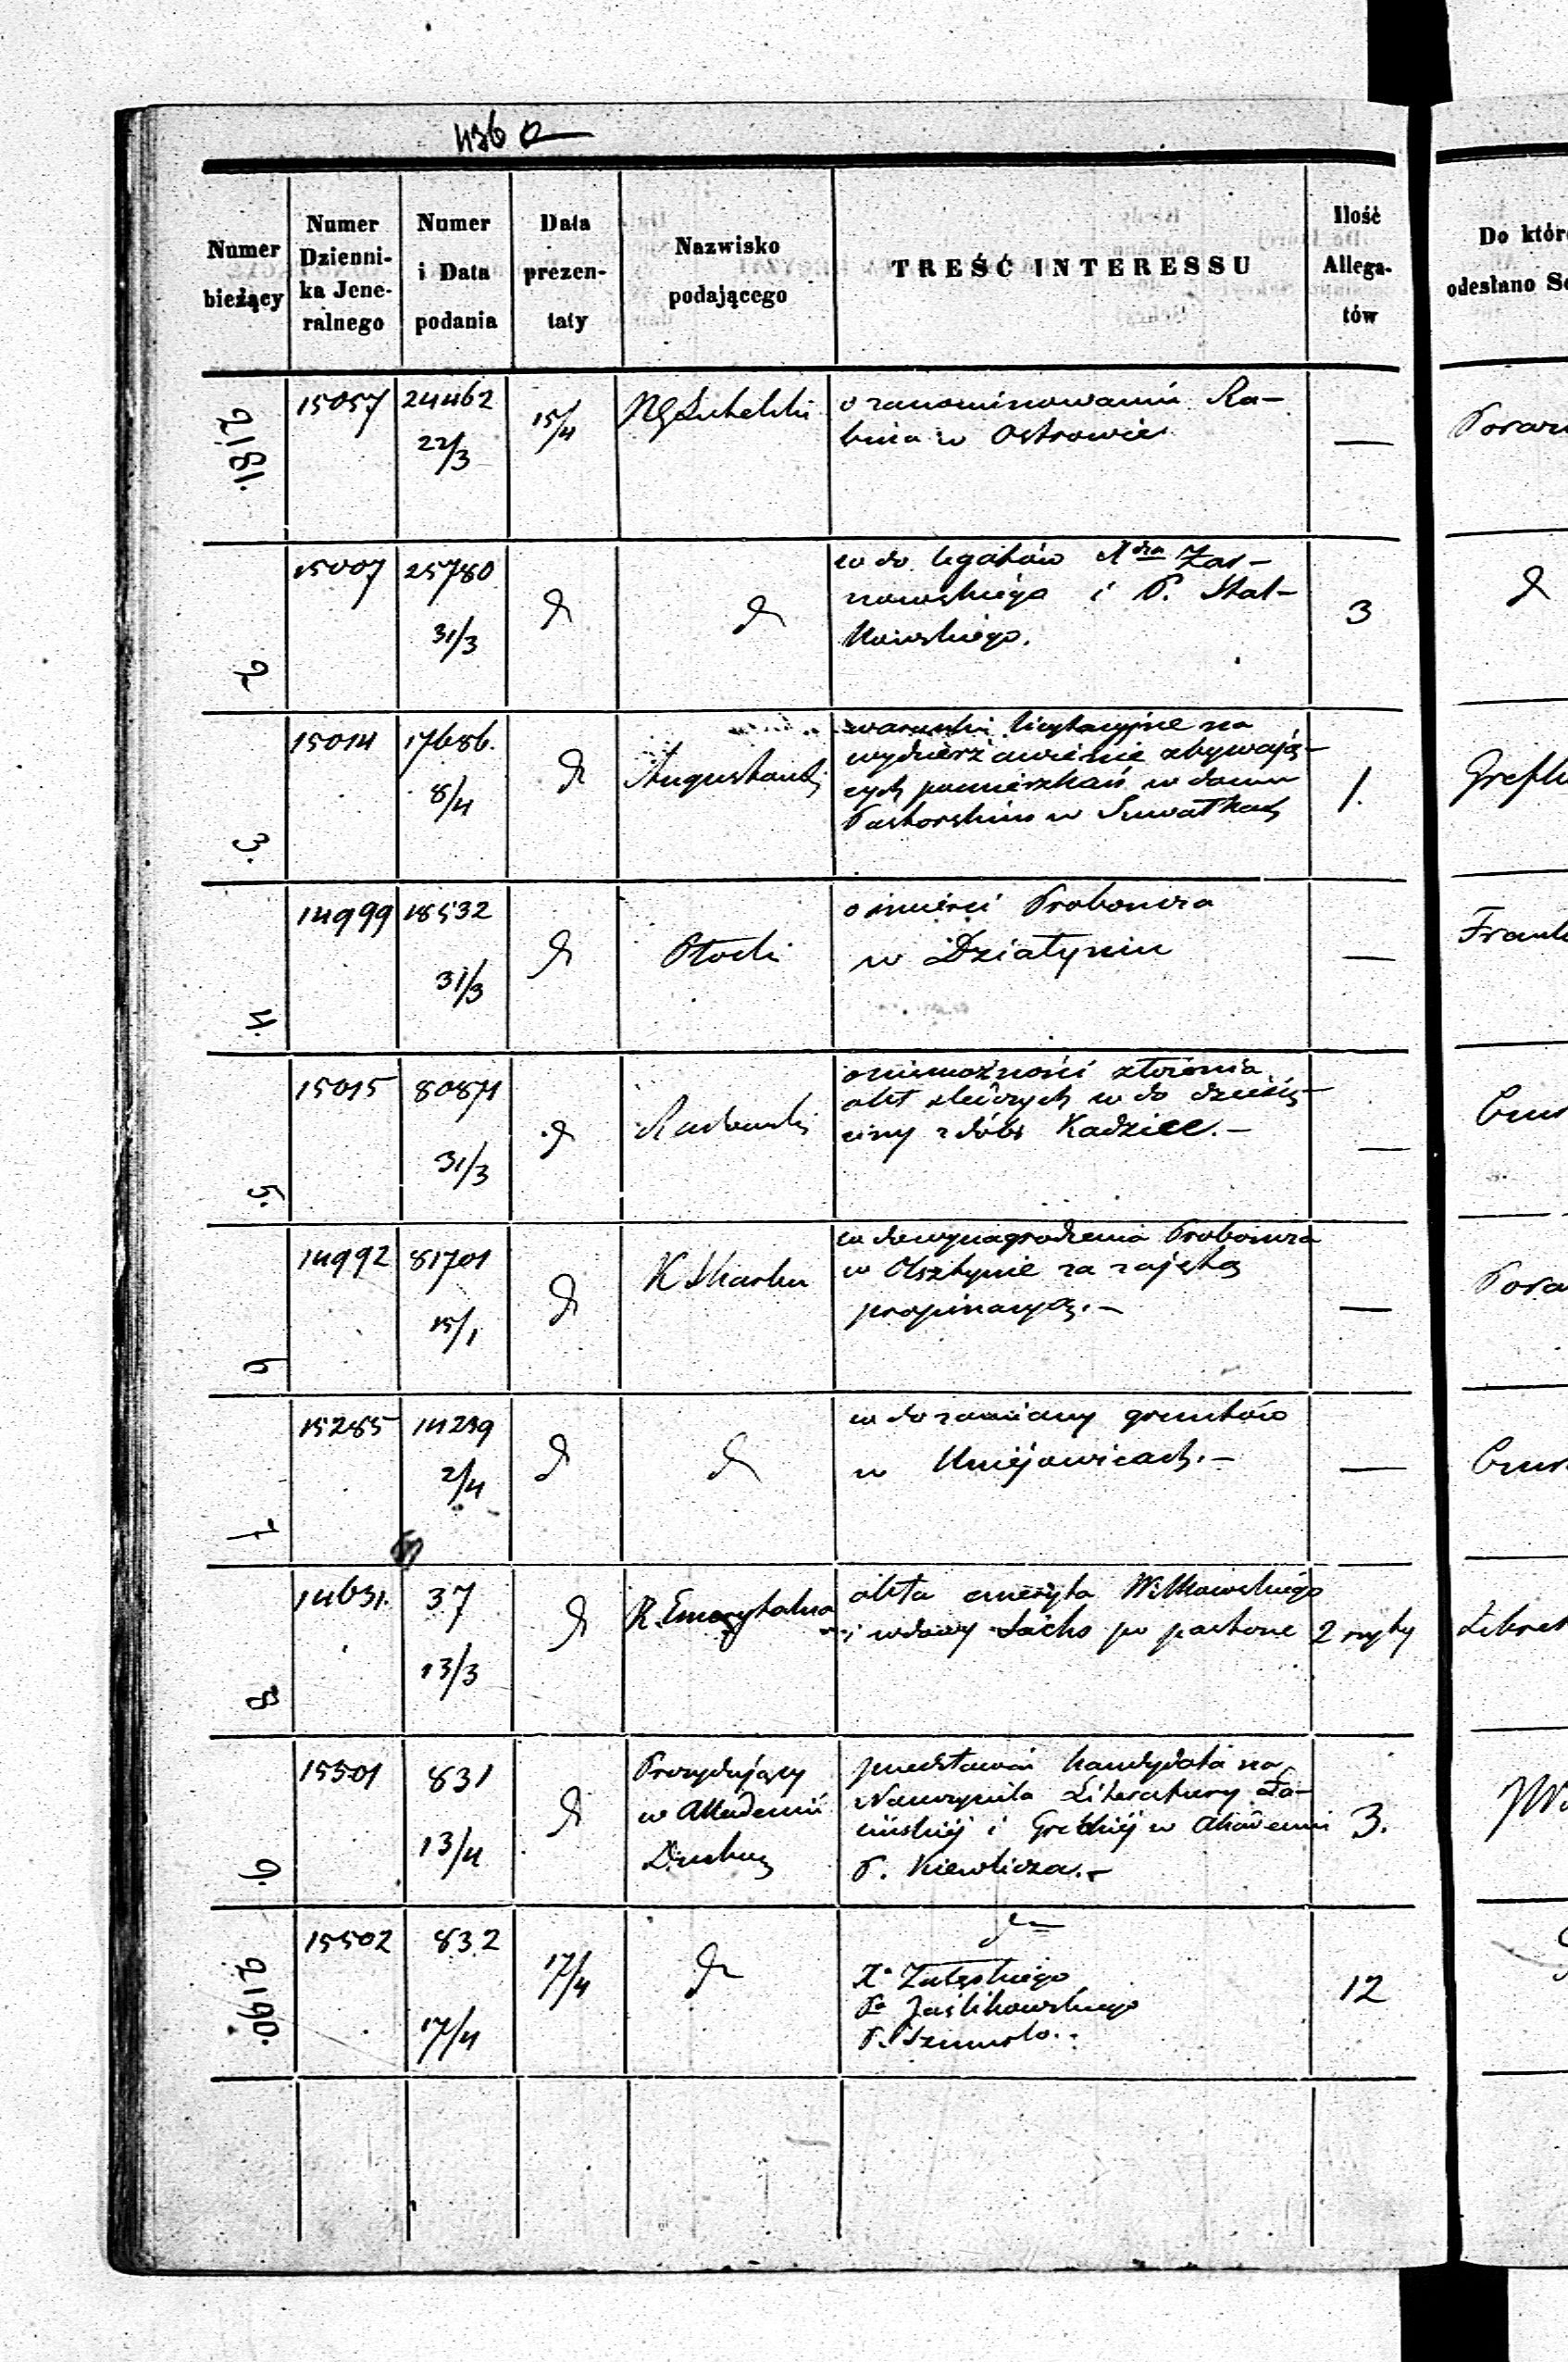 436
Numer bieżący
Numer Dzienni-
ka Jene-
ralnego
Numer
i Data
podania
Data
prezen-
taty
Nazwisko
podającego
TREŚĆ INTERESSU
Ilość
Allega-
tów
Do któr
odesłano Se
2181.
15057
24462
22/3
15/4
RGLubelski
o zanominowaniu Ra-
bina w Ostrowie
—
2
15007
25780
31/3
d
d
w do legatów
nowskiego i P.
3
d
3.
15014
17686.
8/4
d
Augustowski
warunki licytacyjne na
wydzierżawienie zbywają-
cych pomieszkań w domu
Pastorskim w Suwałkach
1.
4.
14999
18532
31/3
d
Płocki
o śmierci Proboszcza
w Działyniu
—
5.
15015
80871
31/3
d
Radomski
o niemożności złożenia
akt w do dziesię-
ciny z dóbr Kadzice.—
—
6
14992
81701
15/1
d
w do wynagrodzenia Proboszcza
w Olsztynie za zajętą
propinacyą.—
—
7
15285
14239
2/4
d
d
w do zamiany gruntów
w Uniejowicach.—
—
8
14631.
37
13/3
d
R. Emerytalna
akta emeryta Witkowskiego
i wdowy po pastorze
2
9.
15501
831
13/4
d
Prezydujący
w Akademii
Duchnej
przedstawia kandydata na
Nauczyciela Literatury Ła-
cińskiej i Greckiej w Akademii
P. Kiewlicza.—
3.
2190.
15502
832
17/4
17/4
d
d
X. Załęskiego
P. Jaślikowskiego
P. Szumsło.
12